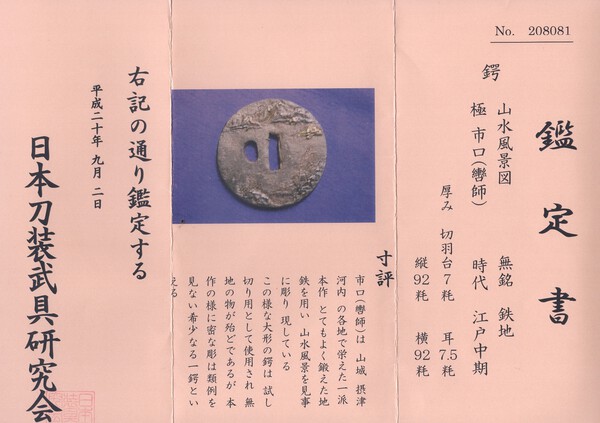 No. 208081
鑑定書
鍔 山水風景図 無銘 鉄地
極 市口(轡師) 時代 江戸中期
厚み 切羽台7粍 耳7.5粍
縦92粍 横92粍
寸評
市口(轡師)は 山城 摂津
河内 の各地で栄えた一派
本作 とてもよく鍛えた地
鉄を用い 山水風景を見事
に彫り現している
この様な大形の鍔は 試し
切り用として使用され 無
地の物が殆どであるが 本
作の様に密な彫は類例を
見ない希少なる一鍔とい
える
右記の通り鑑定する
平成二十年 九月 二日
日本刀装武具研究会